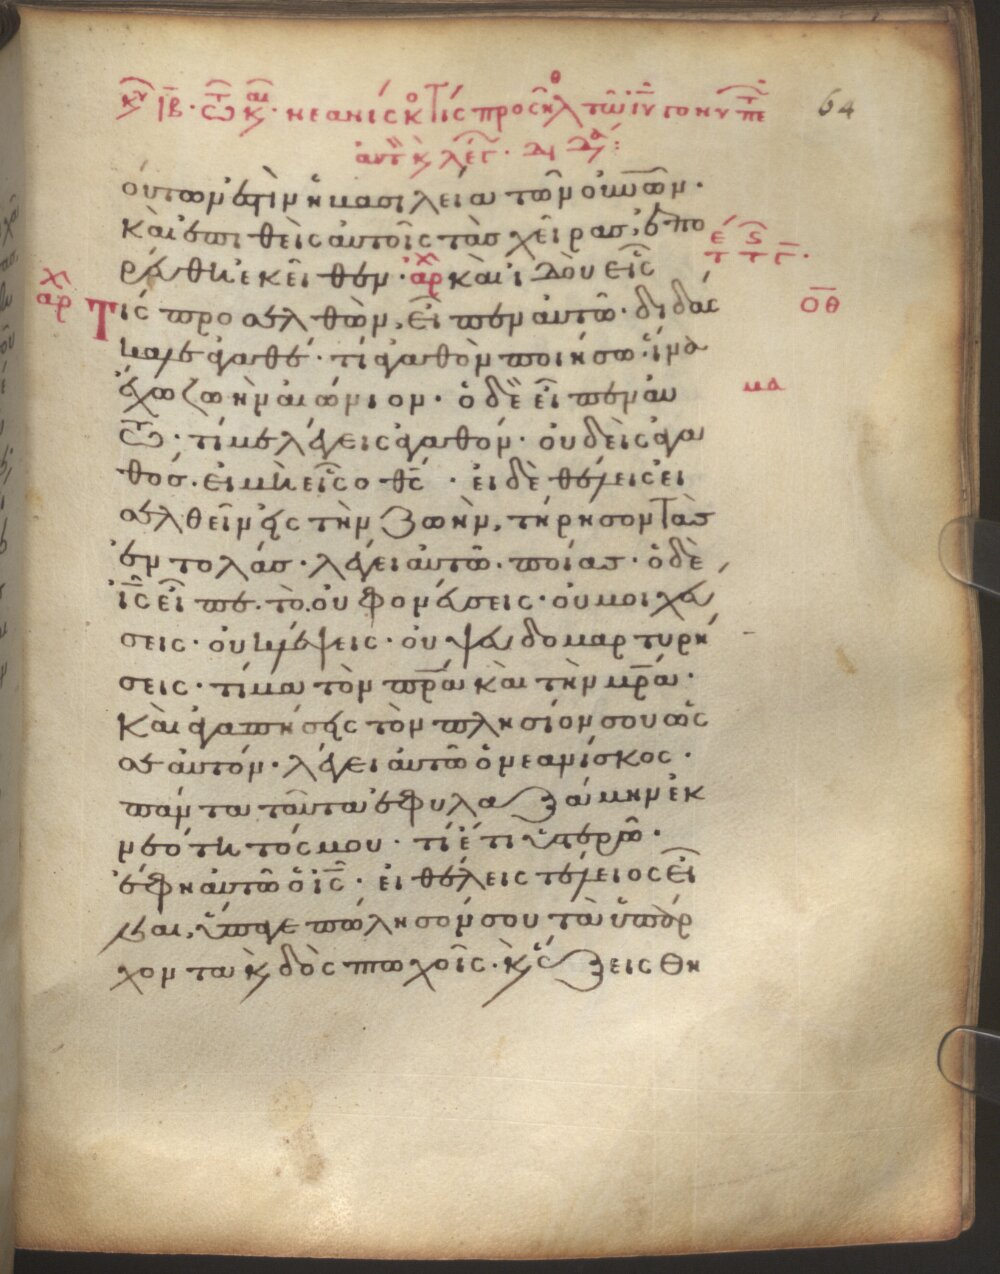 κυ ιβ · τω κ · νεανίσκος τίς προσηλθ τῶ ιυ γονυπετ 64
ούτων ἐστὶν ἡ βασιλεία τῶν οὐνῶν ·
Καὶ ἐπιθεὶς αὐτοῖς τὰς χεῖρας, ἐπο
ρεύθη ἐκεῖθεν · ἀρχ καὶ ἰδοὺ εἷς
ἀρχ Τίς προσελθὼν, εἶπεν αὐτῶ · διδάσ
καλε ἀγαθέ · τί ἀγαθὸν ποιήσω ἵνα
ἔχω ζωὴν αἰώνιον · ὁ δὲ εἶπεν αὐ
τῶ · τί με λέγεις ἀγαθόν · οὐδεὶς ἀγα
θός · εἰ μὴ εἷς ὁ θς · εἰ δὲ θέλεις εἰ
σελθεῖν εἰς τὴν ζωὴν, τήρησον τὰς
ἐντολάς · λέγει αὐτῶ · ποίας · ὁ δὲ
ις εἶπε · τὸ οὐ φονεύσεις · οὐ μοιχεύ
σεις · οὐ κλέψεις · οὐ ψευδομαρτυρή
σεις · τίμα τὸν πρα καὶ τὴν μρα ·
Καὶ ἀγαπήσεις τὸν πλησίον σου ὡς
σεαυτόν · λέγει αὐτῶ ὁ νεανίσκος ·
πάντα ταῦτα ἐφυλαξάμην ἐκ
νεότητός μου · τί ἔτι ὑστερῶ ·
ἔφη αὐτῶ ὁ ις · εἰ θέλεις τέλειος εἶ
ναι, ὕπαγε πώλησόν σου τὰ ὑπάρ
χοντα κ δὸς πτωχοῖς · κ ἕξεις θη
οθ